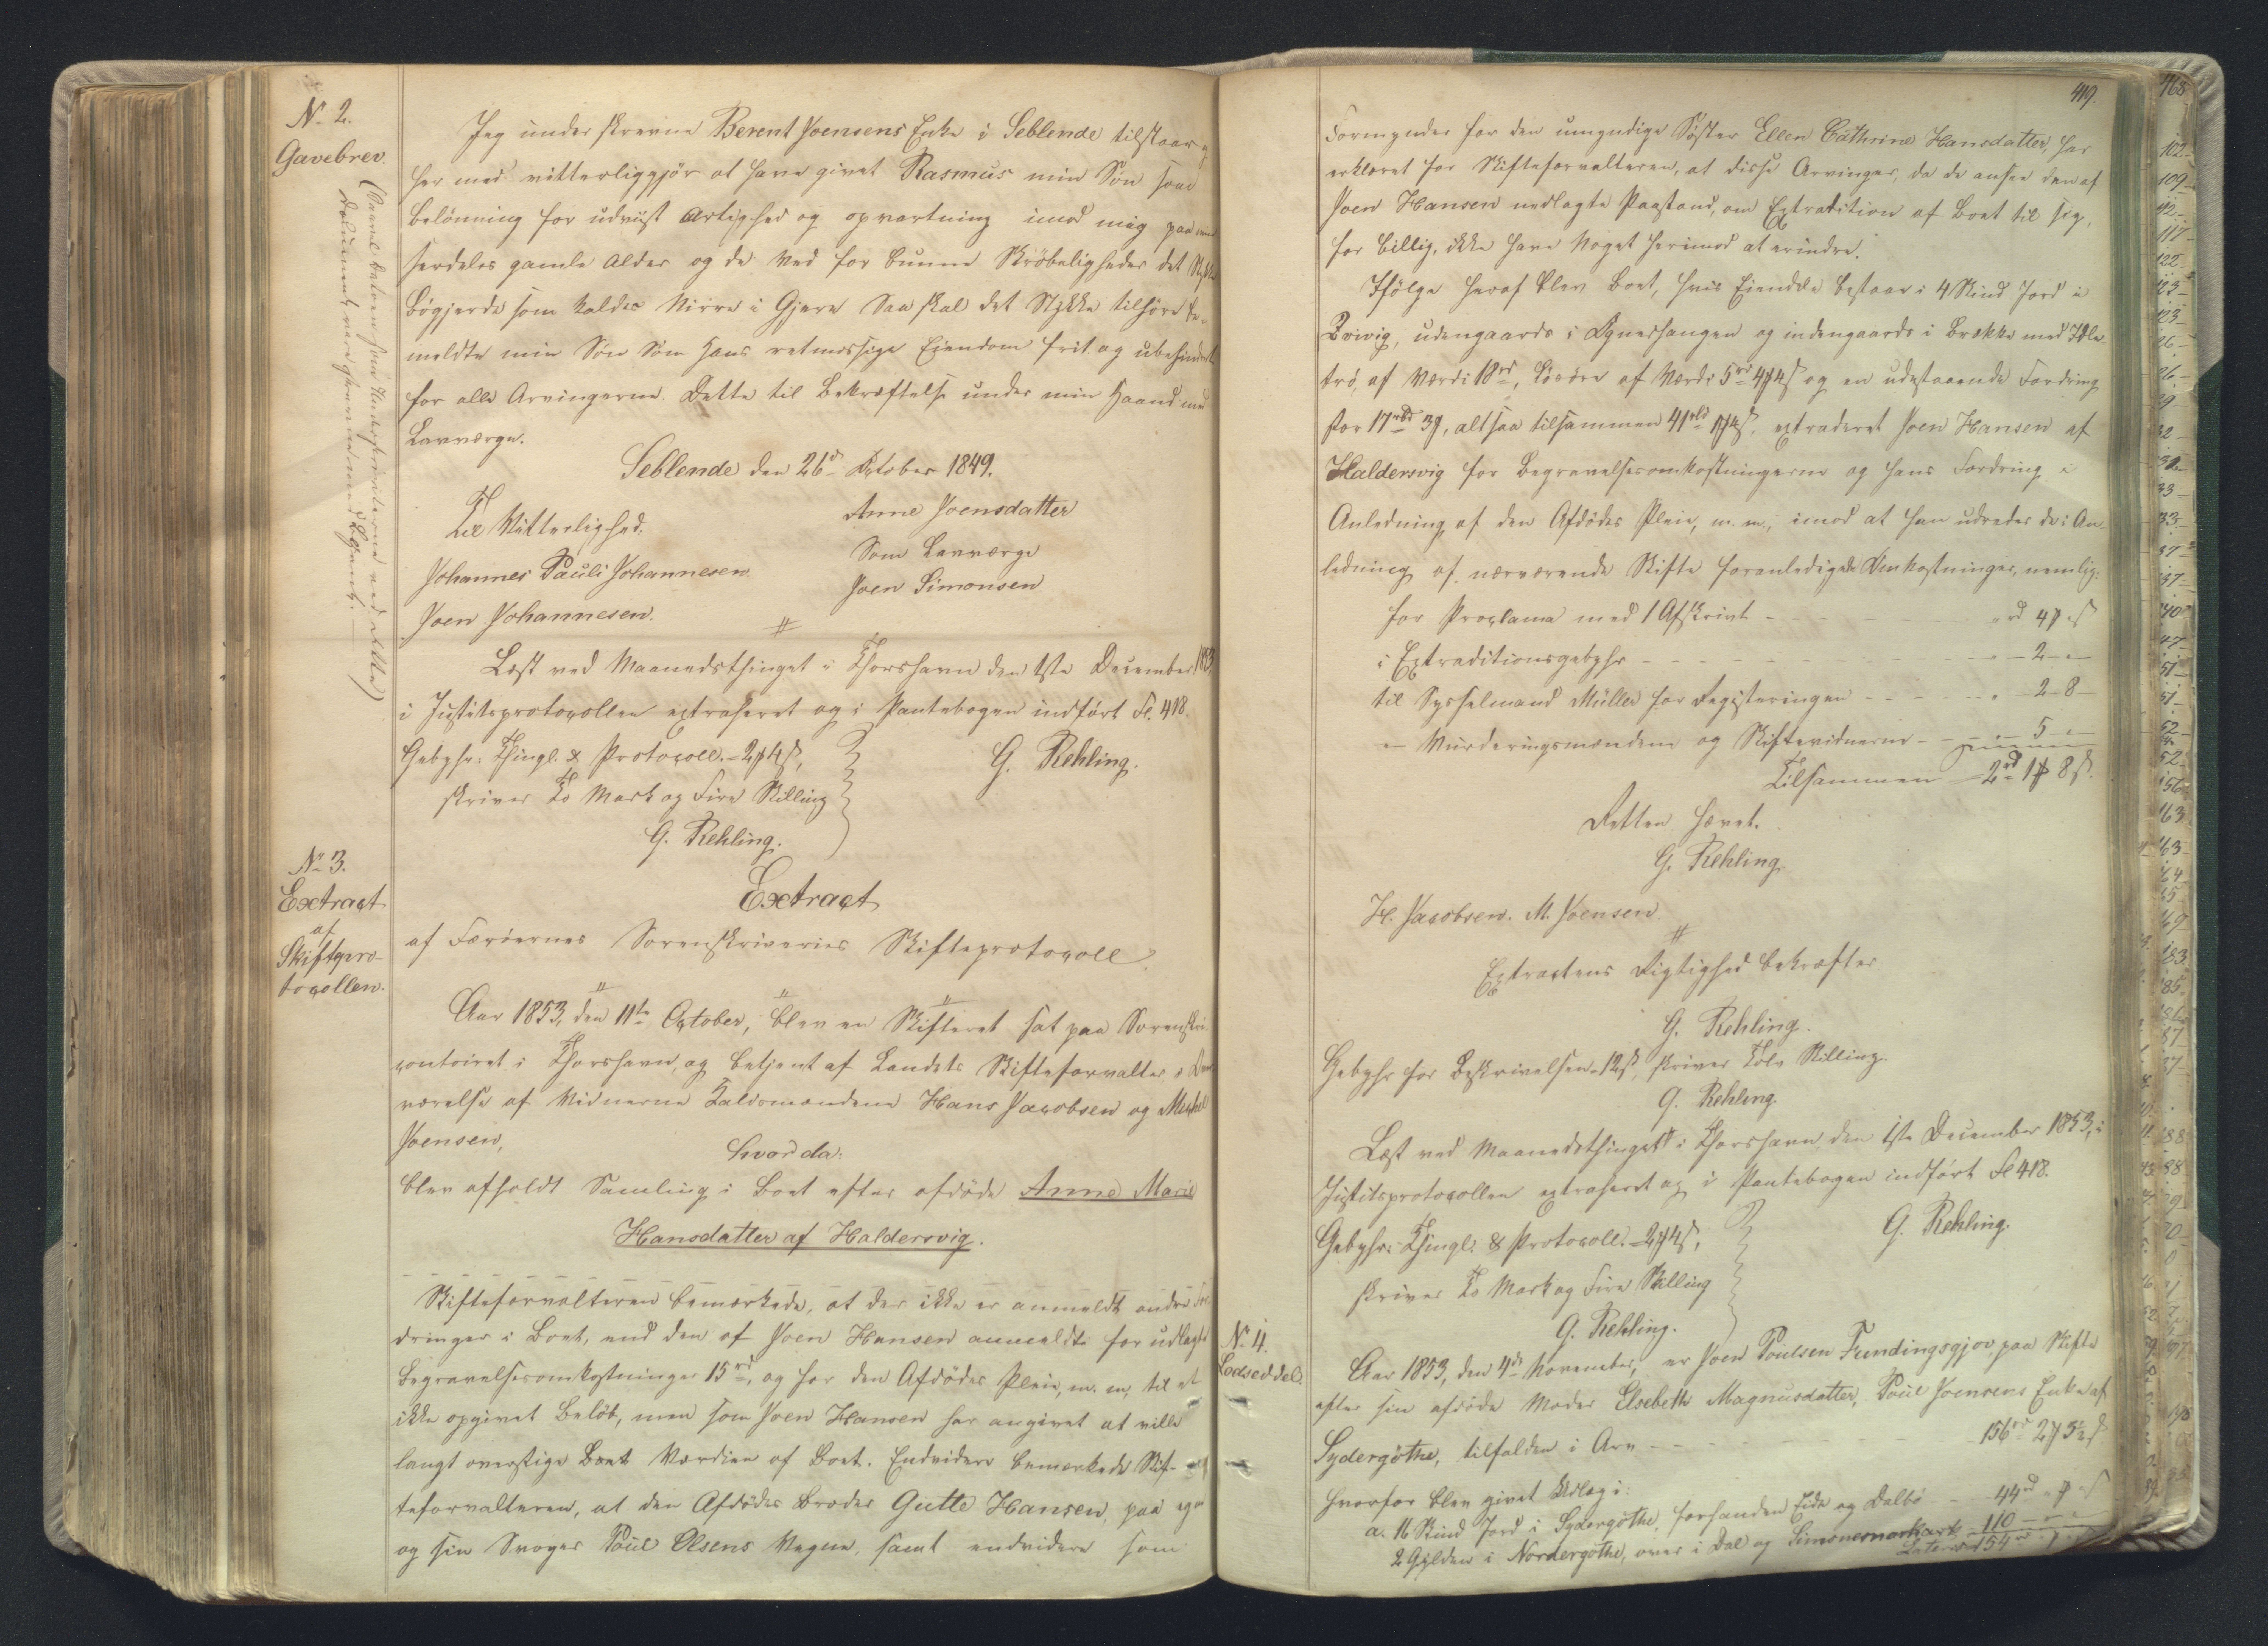 No 2.
Gavebrev.
(Saavel Datoen som Underskrifterne ved dette
Document vare skrevne med Blyant.)
Jeg under skrevne Berent Joensens Enke i Seblende tilstaar
her med vitterliggjør at have givet Rasmus min Søn som
belönning for udviist Artighed og opvartning imod mig paa min
serdeles gamle Alder og de ved for bunne Skröbeligheder det Stykke
Bögjerde som kaldes Nirra i Gjera Saa skal det Stykke tilhöre be-
meldte min Søn Som hans retmessige Eiendom frit og ubehindret
for alle Arvingerne. Dette til Bekræftelse under min Haand med
Lavværge.
Seblende den 26de October 1849.
Til Vitterlighed.
Anne Joensdatter
Johannes Pauli Johannesen
Som Lavværge
Joen Simonsen
Joen Johannesen.
Læst ved Maanedsthinget i Thorshavn den 1ste December 1853
i Justitsprotocollen extraheret og i Pantebogen indført Fl. 418.
Gebyhr: Thingl. & Protocoll. - 2 ₻ 4 ß,
G. Rehling.
skriver To Mark og Fire Skilling
G. Rehling.
No 3.
Extract
af
Skiftepro-
tocollen.
Extract
af Færöernes Sorenskriveries Skifteprotocoll
Aar 1853, den 11te October, blev en Skifteret sat paa Sorenskri-
contoiret i Thorshavn, og betjent af Landets Skifteforvalter i Over-
værelse af Vidnerne Kaldsmændene Hans Jacobsen og Michel
Joensen,
hvor da:
blev afholdt Samling i Boet efter afdöde Anne Marie
Hansdatter af Haldersvig.
Skifteforvalteren bemærkede, at der ikke er anmeldt andre For-
dringer i Boet, end den af Joen Hansen anmeldte for udlagte
Begravelsesomkostninger 15 rd, og for den Afdödes Pleie, m. m, til et
ikke opgivet Belöb, men som Joen Hansen har angivet at ville
langt overstige Boet Værdien af Boet. Endvidere bemærkede Skif-
teforvalteren, at den Afdödes Broder Gutte Hansen, paa egne
og sin Svoger Poul Olsens Vegne, samt endvidere som
419.
Formynder for den umyndige Söster Ellen Cathrine Hansdatter, har
erklæret for Skifteforvalteren, at disse Arvinger, da de ansee den af
Joen Hansen nedlagte Paastand, om Extradition af Boet til sig,
for billig, ikke have Noget herimod at erindre.
Ifölge heraf blev Boet, hvis Eiendele bestaar i 4 Skind Jord i
udengaards i og indengaards i Brekke med
trö, af Værdi 18 rd, Lösöre af Værdi 5 rd 4 ₻ 4 ß og en udestaaende Fordring
stor 17 rbd 3 ₻, altsaa tilsammen 41 rbd 1 ₻ 4 ß, extraderet Joen Hansen af
Haldersvig for Begravelsesomkostningerne og hans Fordring i
Anledning af den Afdödes Pleie, m. m., imod at han udreder de i An-
ledning af nærværende Skifte foranledigede Omkostninger, nemlig:
for Proclama med 1 Afskrivt - - - " rd 4 ₻ " ß
i Extraditionsgebyhr - - - " - 2 - " -
til Sysselmand Müller for Registeringen - - - " - 2 - 8 -
" - Vurderingsmændene og Skiftevidnerne - - " - 5 - " -
Tilsammen - 2 rd 1 ₻ 8 ß.
Retten hævet.
G. Rehling.
H. Jacobsen. M. Joensen
Extractens Rigtighed bekræfter
G. Rehling.
Gebyhr for Beskrivelsen - 12 ß, skriver Tolv Skilling.
G. Rehling.
Læst ved Maanedsthinget i Thorshavn, den 1ste December 1853, i
Justitsprotocollen extraheret og i Pantebogen indfört Fl 418.
Gebyhr: Thingl. & Protocoll. - 2 ₻ 4 ß,
G. Rehling.
skriver To Mark og Fire Skilling
G. Rehling.
No 4.
Lodseddel.
Aar 1853, den 4de November, er Joen Poulsen Fundingsgjov, paa Skifte
efter sin afdöde Moder Elsebeth Magnusdatter, Poul Joensens Enke af
Sydergöthe, tilfalden i Arv - - - 156 rd 2 ₻ 5 ß
hvorfor blev givet Udlæg i:
a. 16 Skind Jord i Sydergöthe, forhanden Eide og Dalbö - 44 rd " ₻ " ß
2 Gylden i Nordergöthe, over i Dal og Simonsmarkark 110 - " - " -
Lateris 154 rd " ₻ " ß